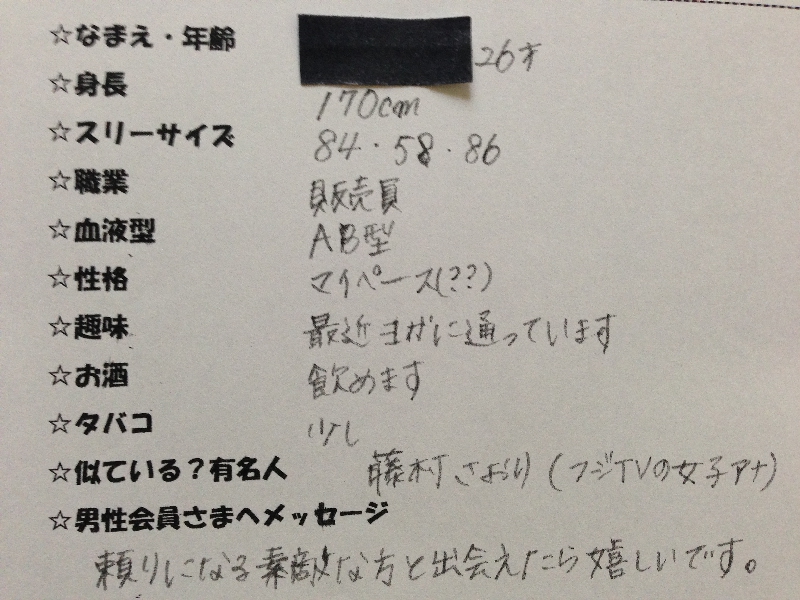 ☆なまえ・年齢 26才
☆身長 170cm
☆スリーサイズ 84・58・86
☆職業 販売員
☆血液型 AB型
☆性格 マイペース(??)
☆趣味 最近ヨガに通っています
☆お酒 飲めます
☆タバコ 少し
☆似ている?有名人 藤村さおり(フジTVの女子アナ)
☆男性会員さまへメッセージ
頼りになる素敵な方と出会えたら嬉しいです。